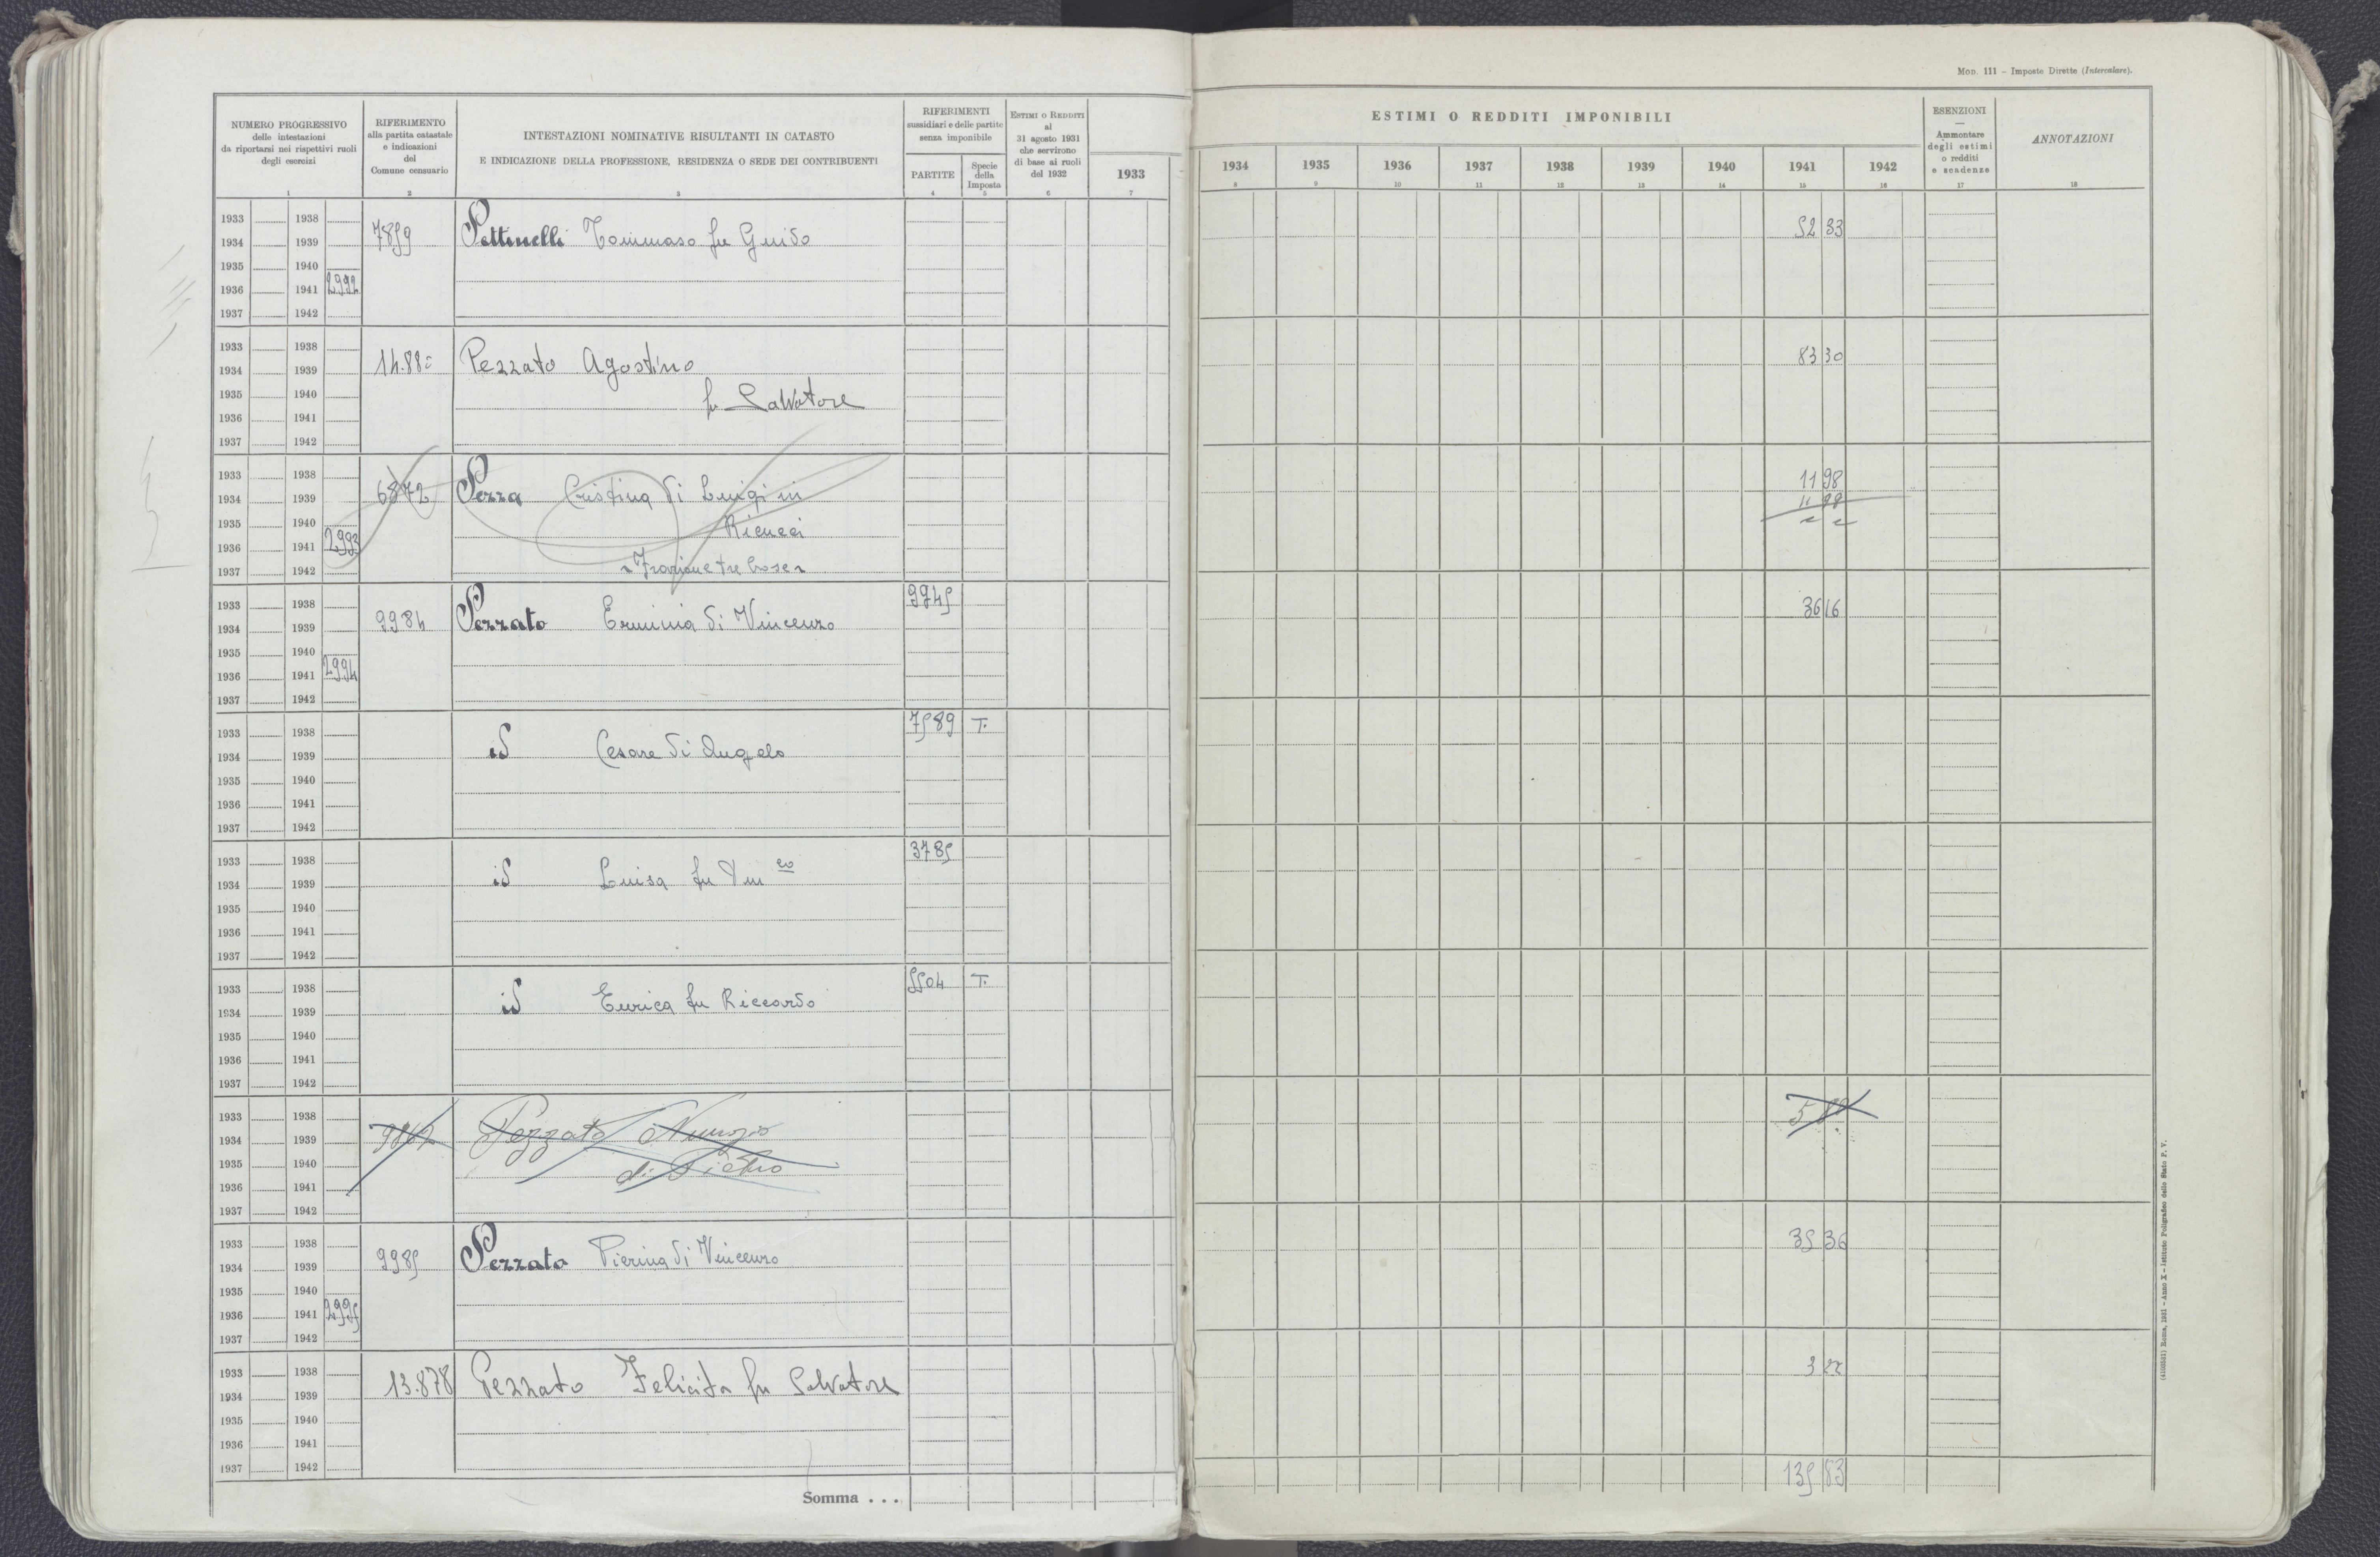 Mod. 111 – Imposte Dirette (Intercalare).
NUMERO PROGRESSIVO
delle intestazioni
da riportarsi nei rispettivi ruoli
degli esercizi
1
RIFERIMENTO
alla partita catastale
e indicazioni
del
Comune censuario
2
INTESTAZIONI NOMINATIVE RISULTANTI IN CATASTO
E INDICAZIONE DELLA PROFESSIONE, RESIDENZA O SEDE DEI CONTRIBUENTI
3
RIFERIMENTI
sussidiari e delle partite
senza imponibile
PARTITE
4
Specie
della
Imposta
5
Estimi o Redditi
al
31 agosto 1931
che servirono
di base ai ruoli
del 1932
6
1933
7
ESTIMI O REDDITI IMPONIBILI
1934 1935 1936 1937 1938 1939 1940 1941 1942
8 9 10 11 12 13 14 15 16
ESENZIONI
—
Ammontare
degli estimi
o redditi
e scadenze
17
ANNOTAZIONI
18
1933 1938
1934 1939 7859 Pettinelli Tommaso fu Guido 52 33
1935 1940
1936 1941 2992
1937 1942
1933 1938
1934 1939 14.88 Pezzato Agostino 83 30
1935 1940 fu Salvatore
1936 1941
1937 1942
1933 1938 11 98
1934 1939 6872 Pezza Cristina di Luigi in 11 98
1935 1940 Ricucci
1936 1941 2993
1937 1942 Frazione tre Case
1933 1938 9945
1934 1939 9984 Pezzato Erminia di Vincenzo 36 16
1935 1940
1936 1941 2994
1937 1942
1933 1938 7589 T.
1934 1939 id Cesare di Angelo
1935 1940
1936 1941
1937 1942
1933 1938 3785
1934 1939 id Luisa fu Vin co
1935 1940
1936 1941
1937 1942
1933 1938 5504 T.
1934 1939 id Enrica fu Riccardo
1935 1940
1936 1941
1937 1942
1933 1938
1934 1939 Pezzato Nunzio
1935 1940 di Pietro
1936 1941
1937 1942
1933 1938
1934 1939 9985 Pezzato Pierina di Vincenzo 35 36
1935 1940
1936 1941 2995
1937 1942
1933 1938
1934 1939 13.878 Pezzato Felicita fu Salvatore 3 22
1935 1940
1936 1941
1937 1942
Somma . . . 135 83
Roma, 1931 – Anno X – Istituto Poligrafico dello Stato P. V.